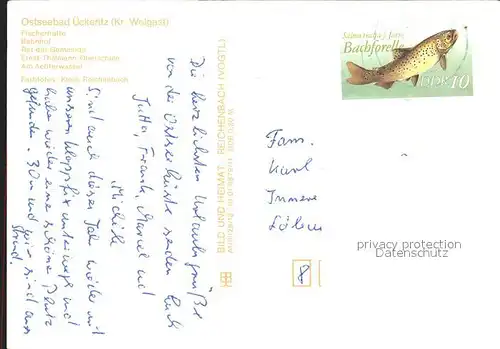 Ostseebad Ückeritz (Kr. Wolgast)
Fischerhütte
Bahnhof
Rat der Gemeinde
Ernst-Thälmann-Oberschule
Am Achterwasser
Die herzlichsten Urlaubsgrüße
von der Ostseeküste senden Euch
Jutta, Frank, Marcel und
Michéle
Sind auch dieses Jahr wieder mit
unserem Klappfix unterwegs und
haben wieder eine schöne Platz
gefunden. 30 m und wir sind am
Strand.
BILD UND HEIMAT REICHENBACH (VOGTL)
Salmo trutta f. fario
Bachforelle
DDR 10
Fam.
Karl
Immere
privacy protection
Datenschutz
8